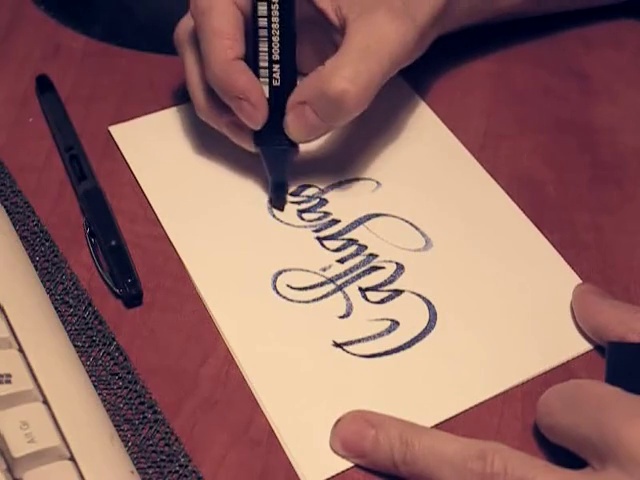 EAN 900628895
Calligrap
Alt Gr